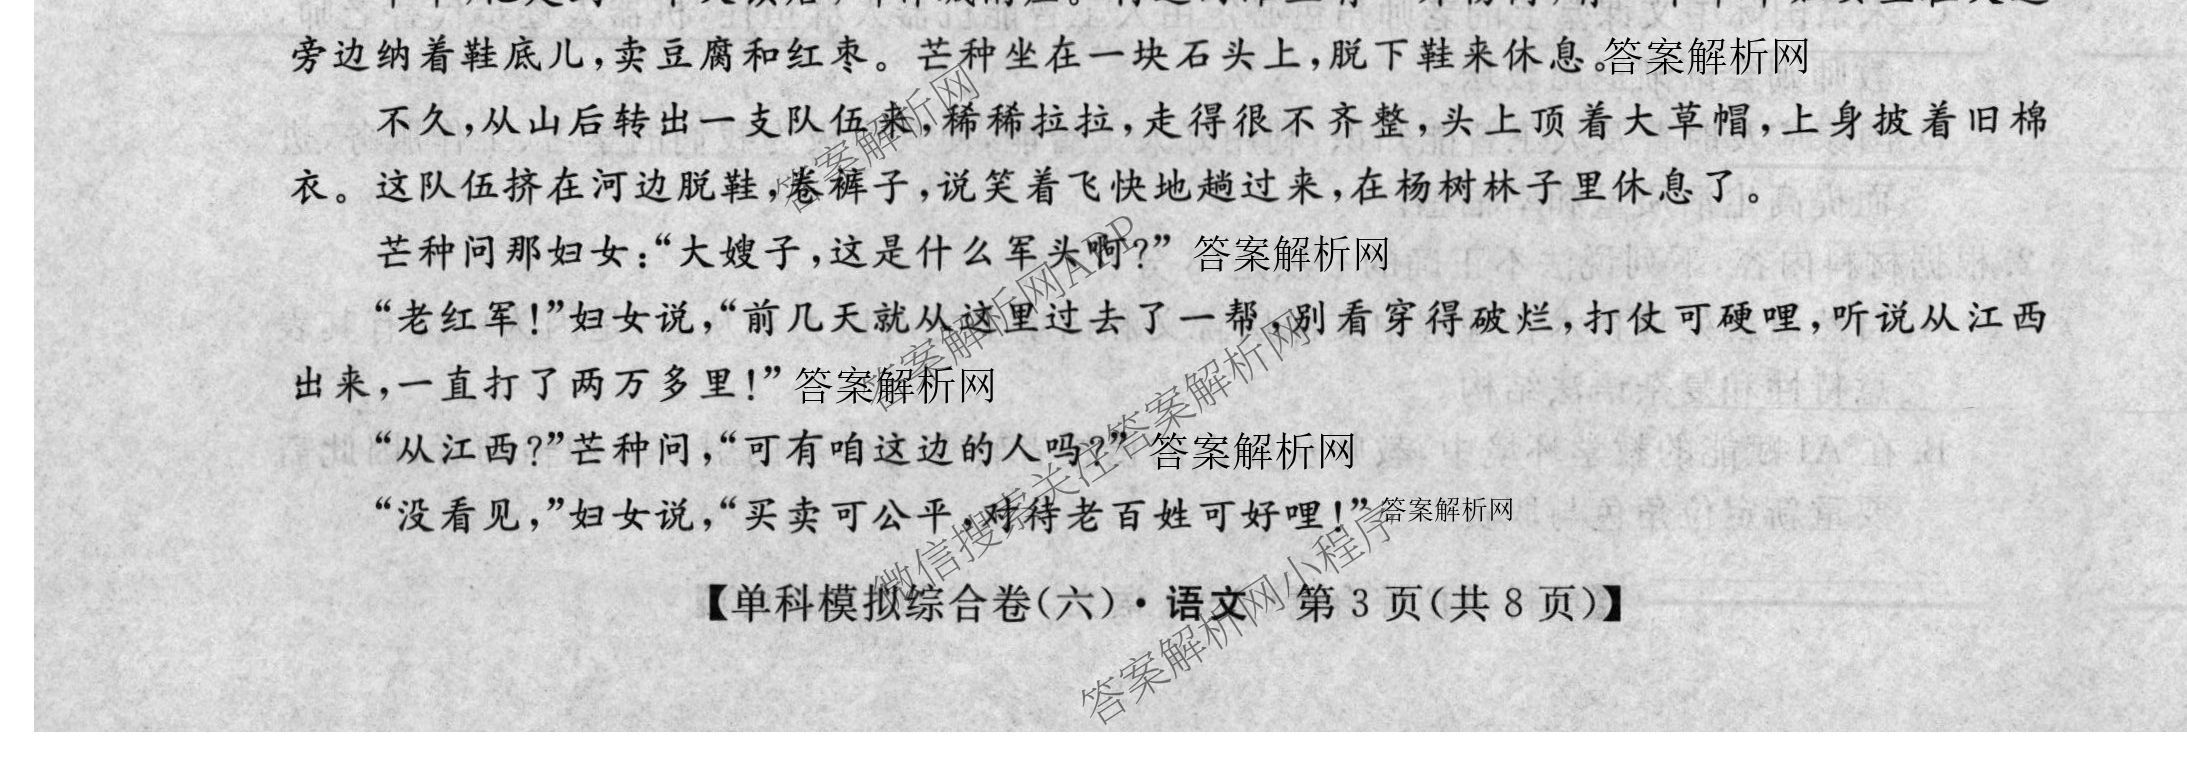 旁边纳着鞋底儿,卖豆腐和红枣。芒种坐在一块石头上,脱下鞋来休息。答案解析网
不久,从山后转出一支队伍来,稀稀拉拉,走得很不齐整,头上顶着大草帽,上身披着旧棉
衣。这队伍挤在河边脱鞋,卷裤子,说笑着飞快地趟过来,在杨树林子里休息了。
芒种问那妇女:“大嫂子,这是什么军头啊?” 答案解析网
“老红军!”妇女说,“前几天就从这里过去了一帮,别看穿得破烂,打仗可硬哩,听说从江西
出来,一直打了两万多里!” 答案解析网
“从江西?”芒种问,“可有咱这边的人吗?” 答案解析网
“没看见,”妇女说,“买卖可公平,对待老百姓可好哩!” 答案解析网
【单科模拟综合卷(六)·语文 第3页(共8页)】
答案解析网
答案解析网APP
微信搜索关注答案解析网
答案解析网小程序